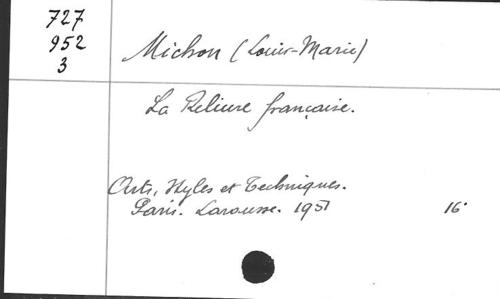 727
952
3
Michon (Louis-Marie)
La Reliure française.
Arts, Styles et Techniques.
Paris. Larousse. 1951 16°